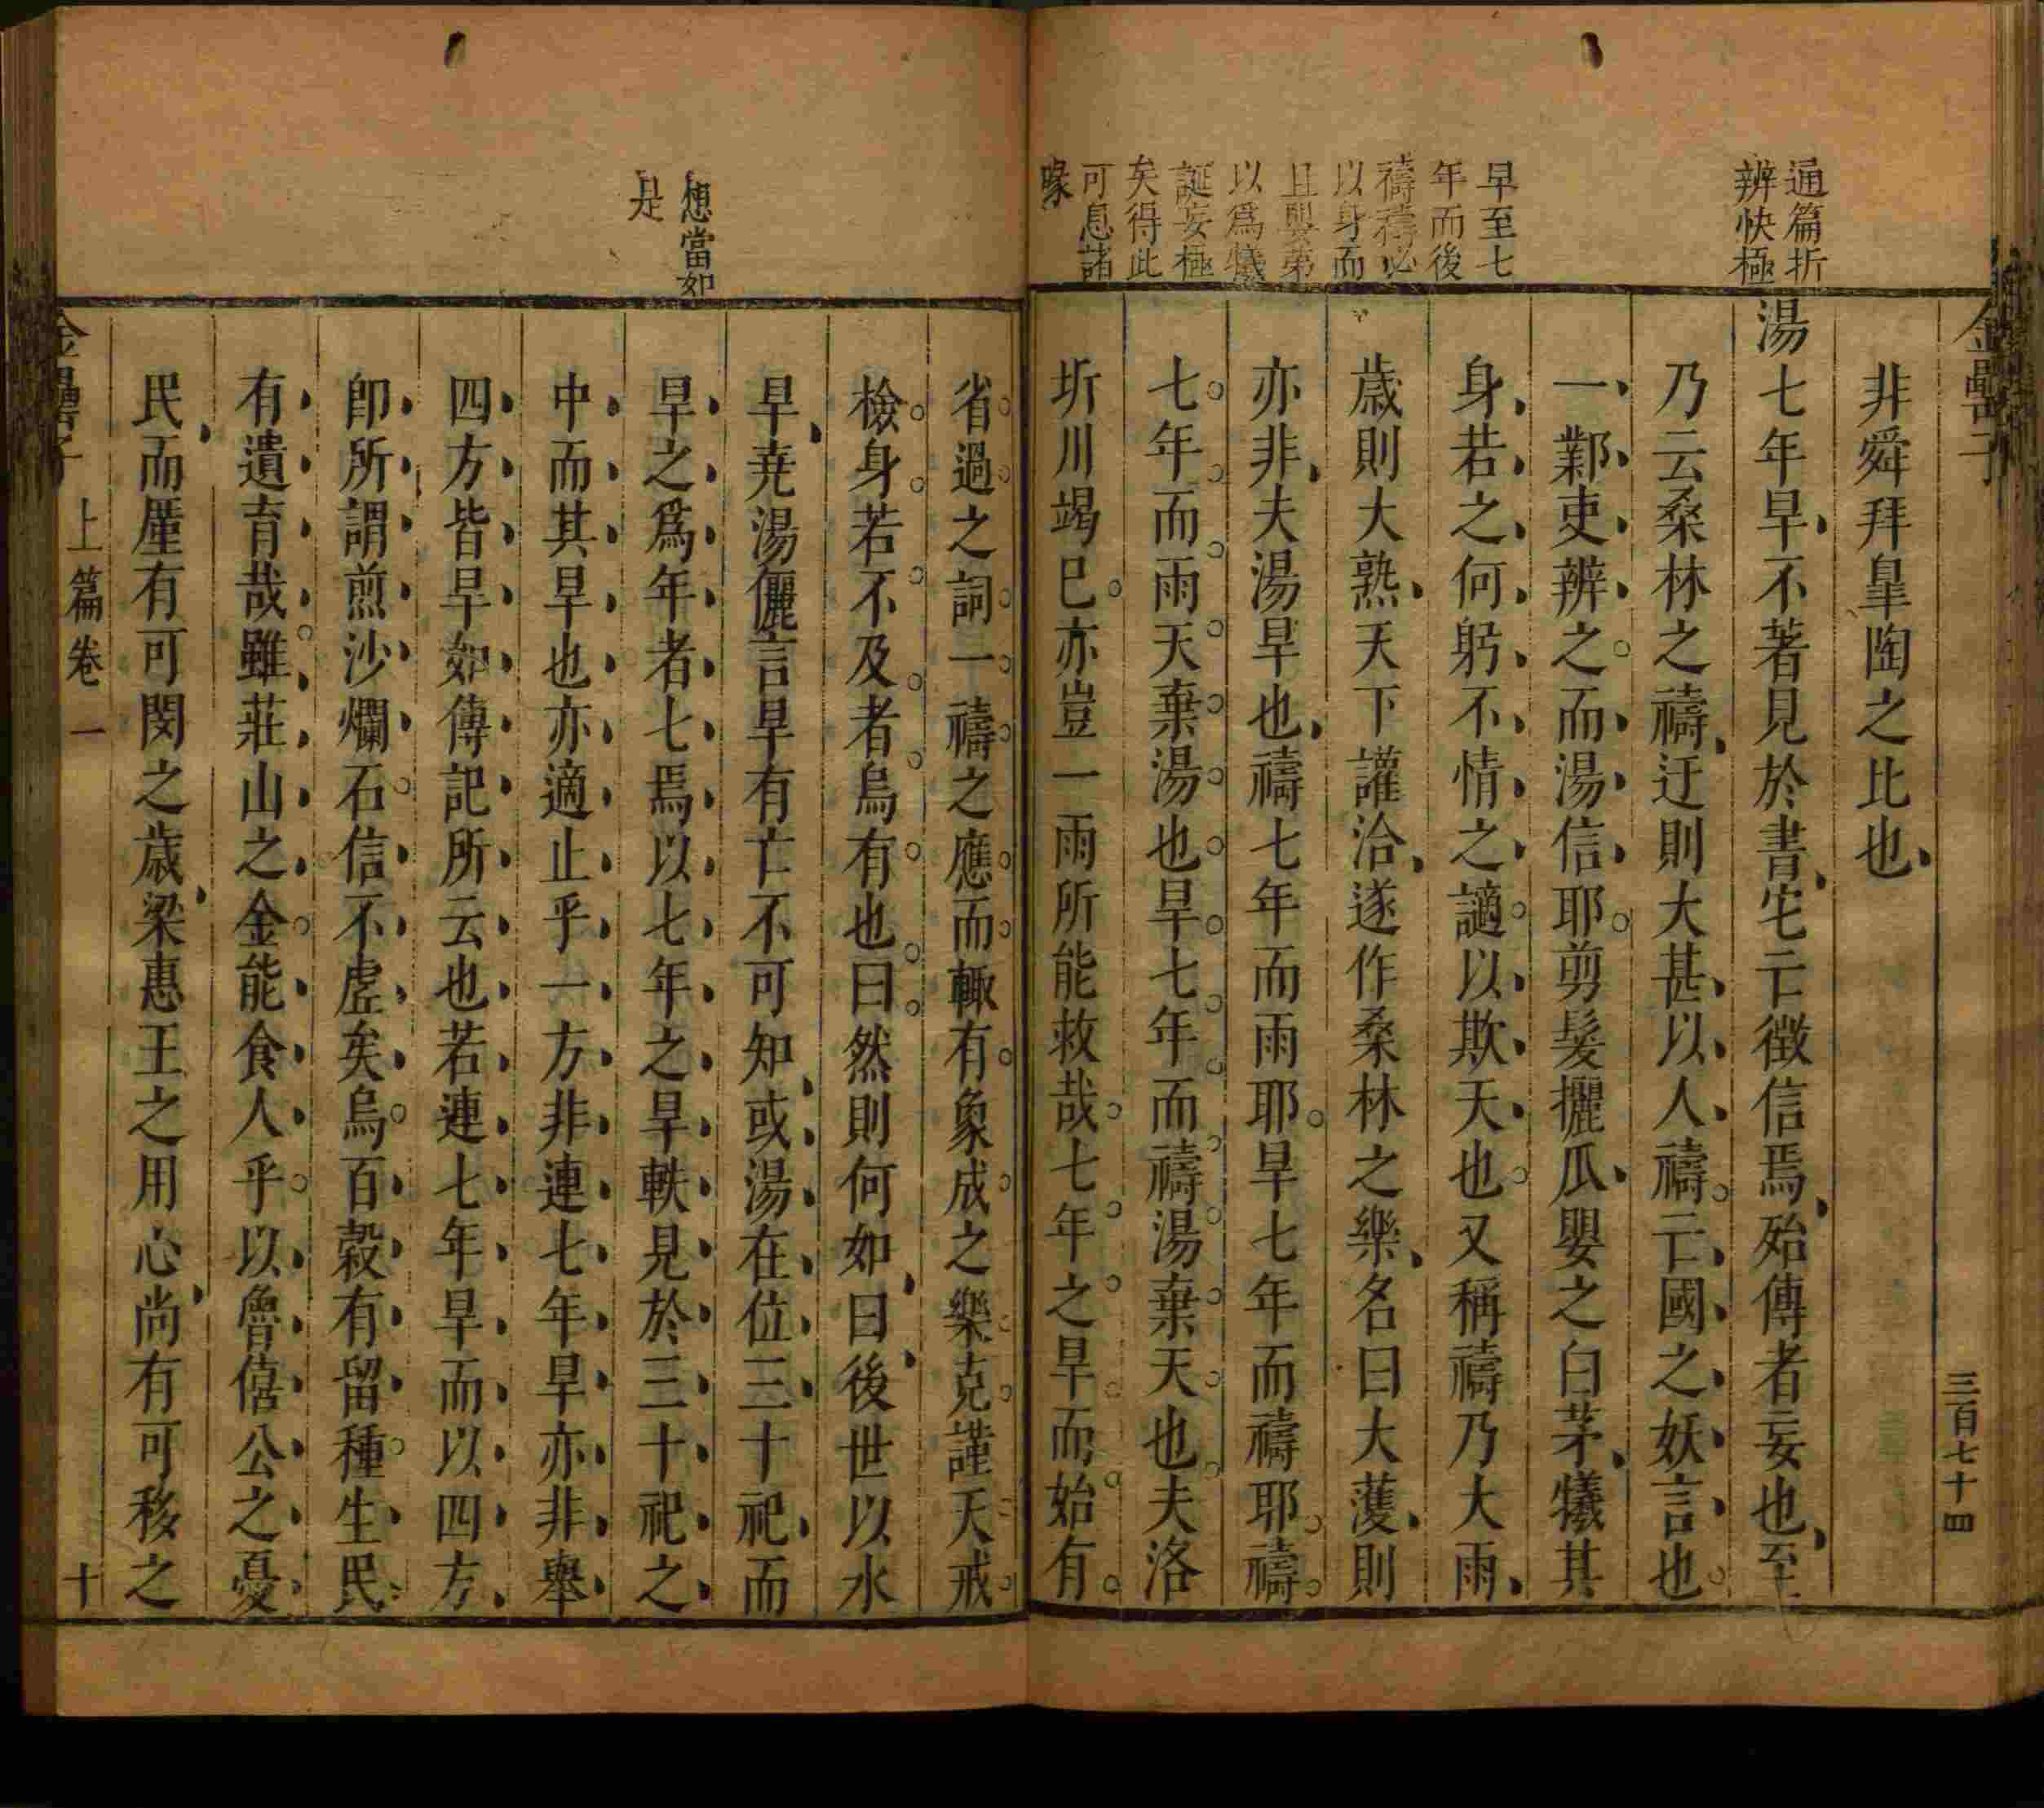 金罍子
三百七十四
通篇折
辨快極
旱至七
年而後
禱禱必
以身而
且與弟
以爲犧
誕妄極
矣得此
可息諸
喙
非舜拜皐陶之比也
湯七年旱不著見於書宅亡徵信焉殆傳者妄也至
乃云桑林之禱迂則大甚以人禱亡國之妖言也
一鄴吏辨之而湯信耶剪髮攦瓜嬰之白茅犧其
身若之何躬不情之讁以欺天也又稱禱乃大雨
歲則大熟天下讙洽遂作桑林之樂名曰大濩則
亦非夫湯旱也禱七年而雨耶旱七年而禱耶禱
七年而雨天棄湯也旱七年而禱湯棄天也夫洛
圻川竭巳亦豈一雨所能救哉七年之旱而始有
想當如
是
省過之詞一禱之應而輙有象成之樂克謹天戒
檢身若不及者烏有也曰然則何如曰後世以水
旱堯湯儷言旱有亡不可知或湯在位三十祀而
旱之爲年者七焉以七年之旱軼見於三十祀之
中而其旱也亦適止乎一方非連七年旱亦非舉
四方皆旱如傳記所云也若連七年旱而以四方
卽所謂煎沙爛石信不虛矣烏百穀有留種生民
有遺育哉雖莊山之金能食人乎以魯僖公之憂
民而厪有可閔之歲梁惠王之用心尚有可移之
金罍子
上篇卷一
十